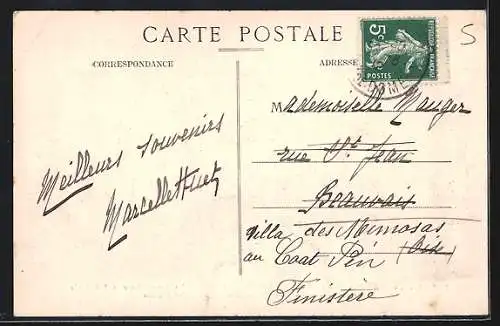 CARTE POSTALE
CORRESPONDANCE
ADRESSE
5c
POSTES
Meilleurs souvenirs
Marcelle Huet
Mademoiselle Mauger
rue St Jean
Beauvais
villa des Mimosas
(Oise)
au Coat Pin
Finistère
S